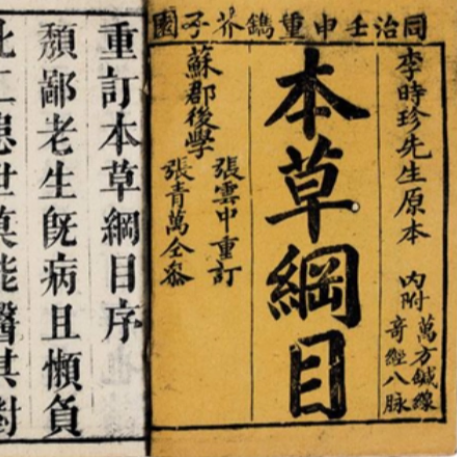 同治壬申重鐫芥子園
李時珍先生原本
內附
萬方鍼線
奇經八脉
本草綱目
蘇郡後學
張雲中重訂
張青萬仝參
重訂本草綱目序
頹鄙老生旣病且懶負
此工患世莫能醫其對